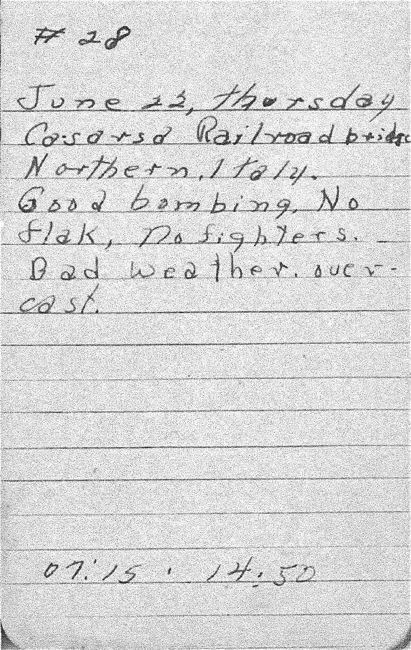 # 28
June 22, Thursday
Casarsa Railroad bridge
Northern, Italy.
Good bombing, No
flak, no fighters.
Bad weather. over-
cast.
07:15 . 14:50